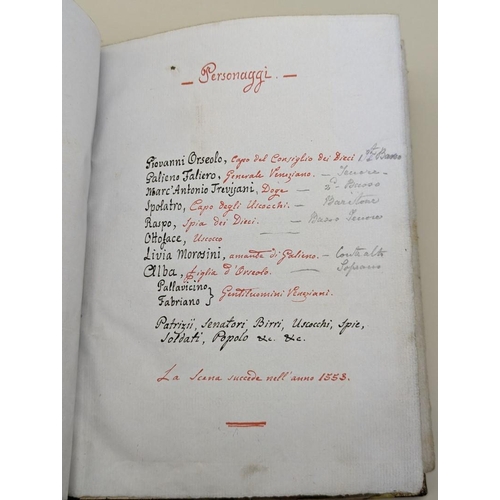 — Personaggi. —
Giovanni Orseolo, Capo del Consiglio dei Dieci 1º Basso
Galieno Faliero, Generale Veneziano. — Tenore —
Marc'Antonio Trevijani, Doge — 2º Basso
Spolatro, Capo degli Uscocchi. — Baritono
Raspo, Spia dei Dieci. — Basso Tenore
Ottoface, Uscocco
Livia Morosini, amante di Galieno. — Contralto
Alba, figlia d'Orseolo. — Soprano
Pallavicino
Fabriano } Gentiluomini Veneziani.
Patrizii, Senatori, Birri, Uscocchi, Spie,
Soldati, Popolo &c. &c.
La Scena succede nell'anno 1553.